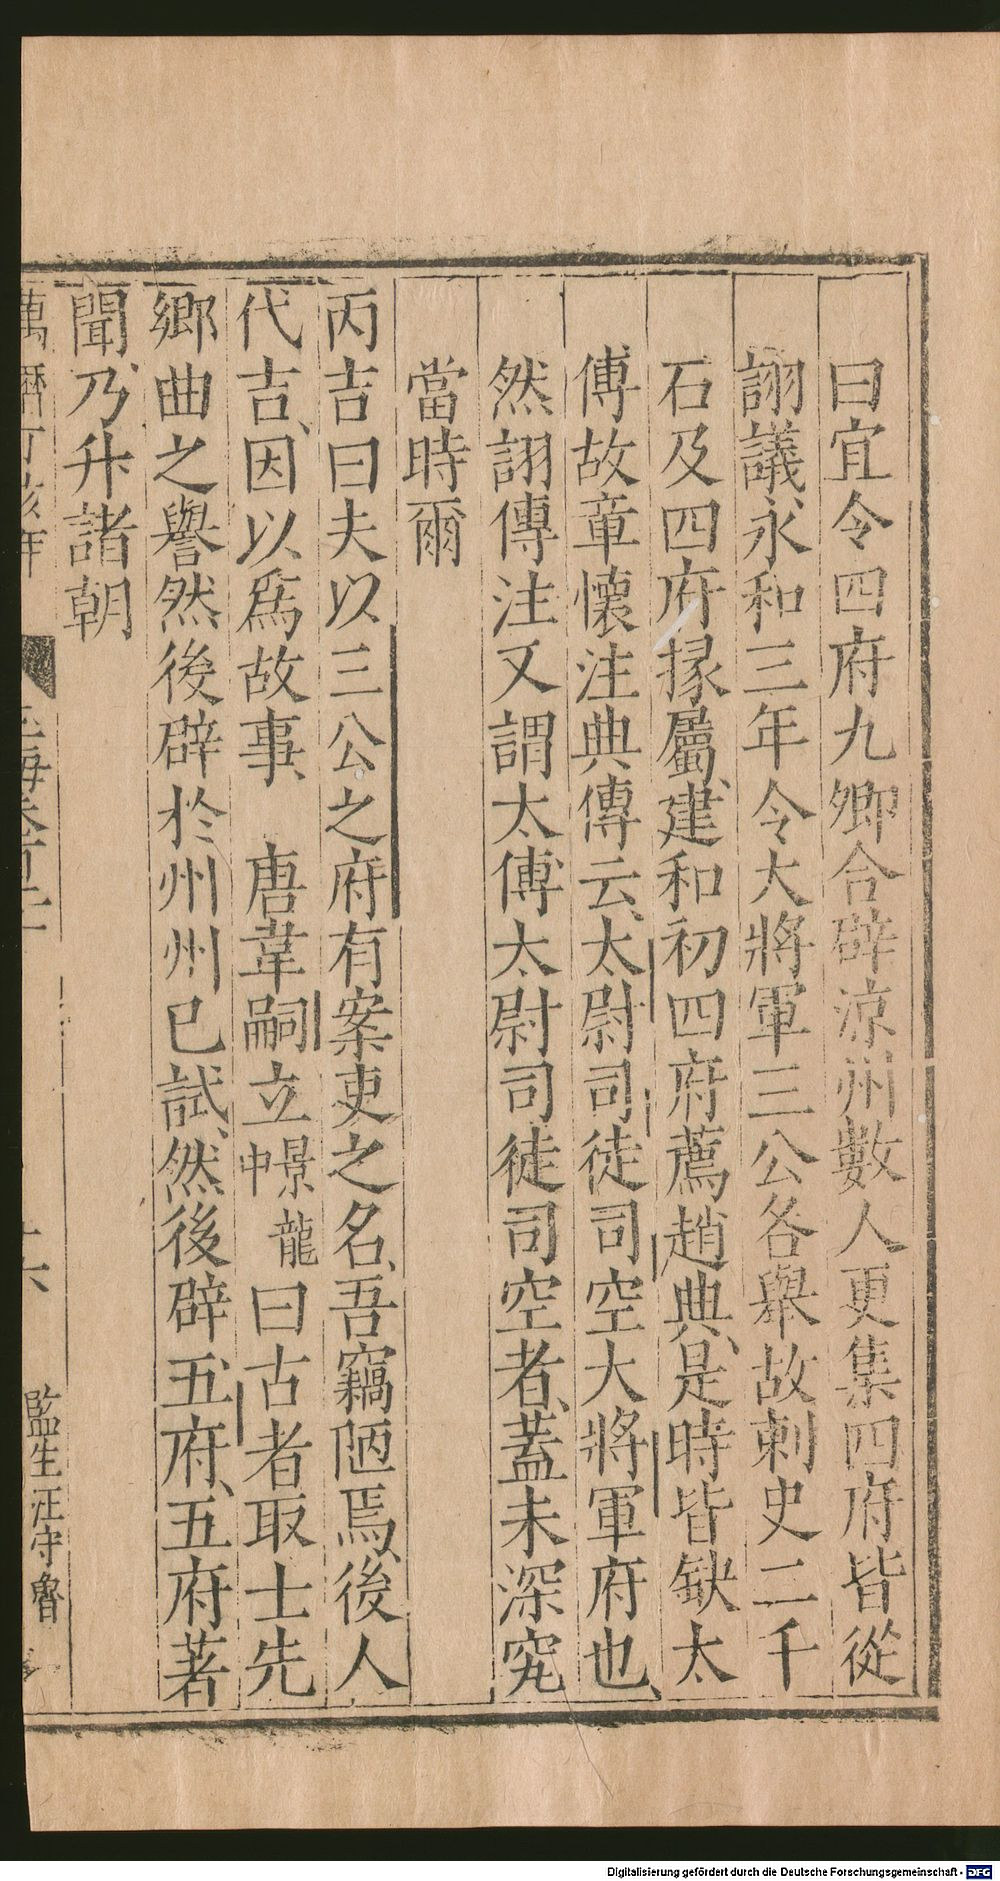 曰宜令四府九卿合辟涼州數人更集四府皆從
詡議永和三年令大將軍三公各舉故刺史二千
石及四府掾屬建和初四府薦趙典是時皆缺太
傅故章懷注典傳云太尉司徒司空大將軍府也
然詡傳注又謂太傅太尉司徒司空者蓋未深究
當時爾
丙吉曰夫以三公之府有案吏之名吾竊陋焉後人
代吉因以爲故事 唐韋嗣立景龍中曰古者取士先
鄉曲之譽然後辟於州州已試然後辟五府五府著
聞乃升諸朝
萬曆丁亥年
監生汪守魯
Digitalisierung gefördert durch die Deutsche Forschungsgemeinschaft - DFG